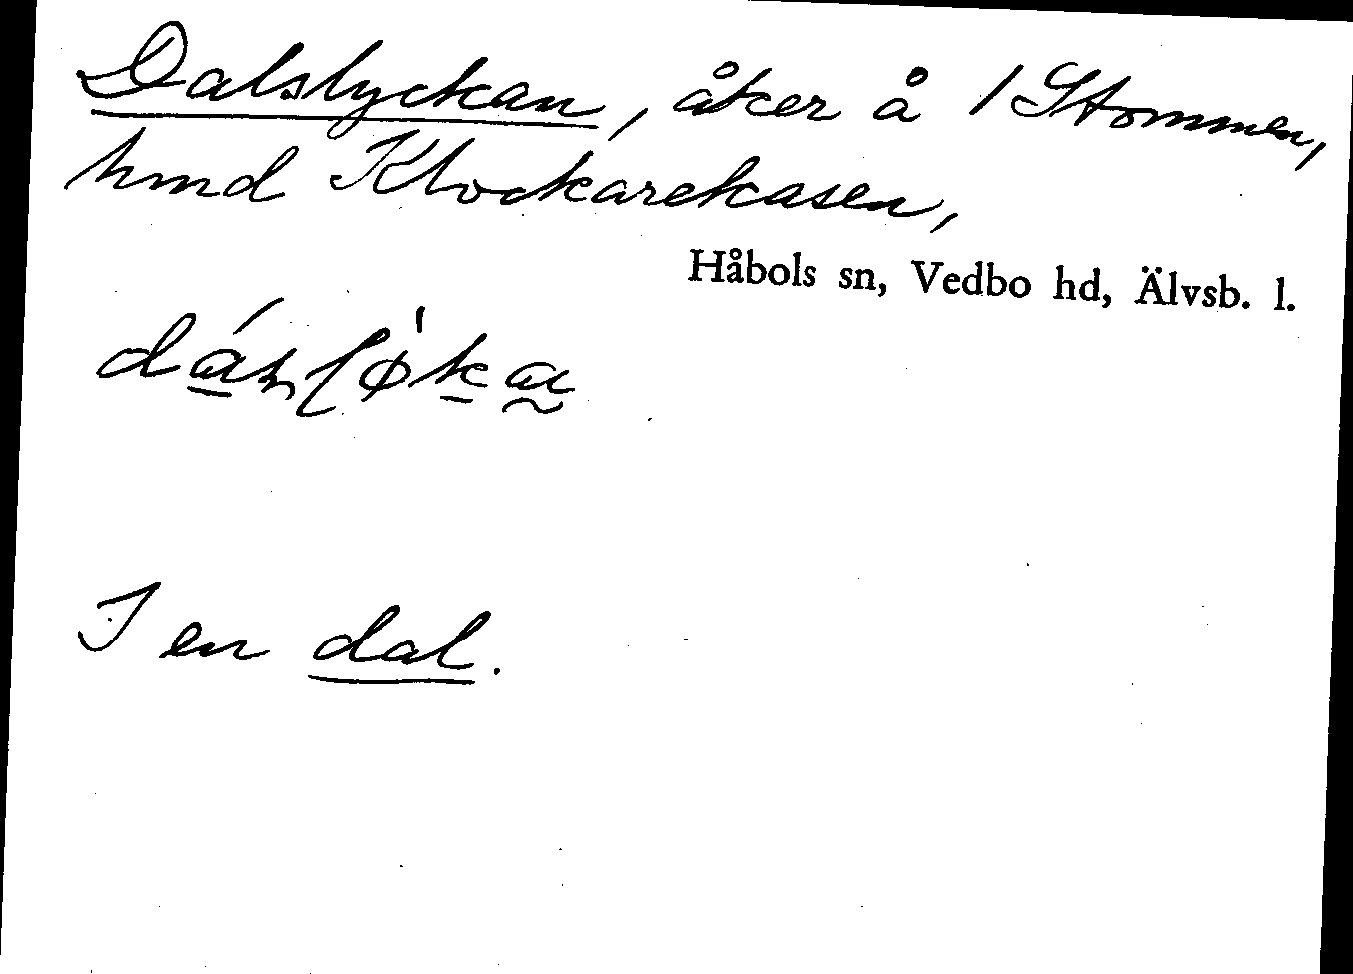 Dalslyckan, åker å 1 Stommen,
hmd Klockarekasen,
Håbols sn, Vedbo hd, Älvsb. l.
I en dal.